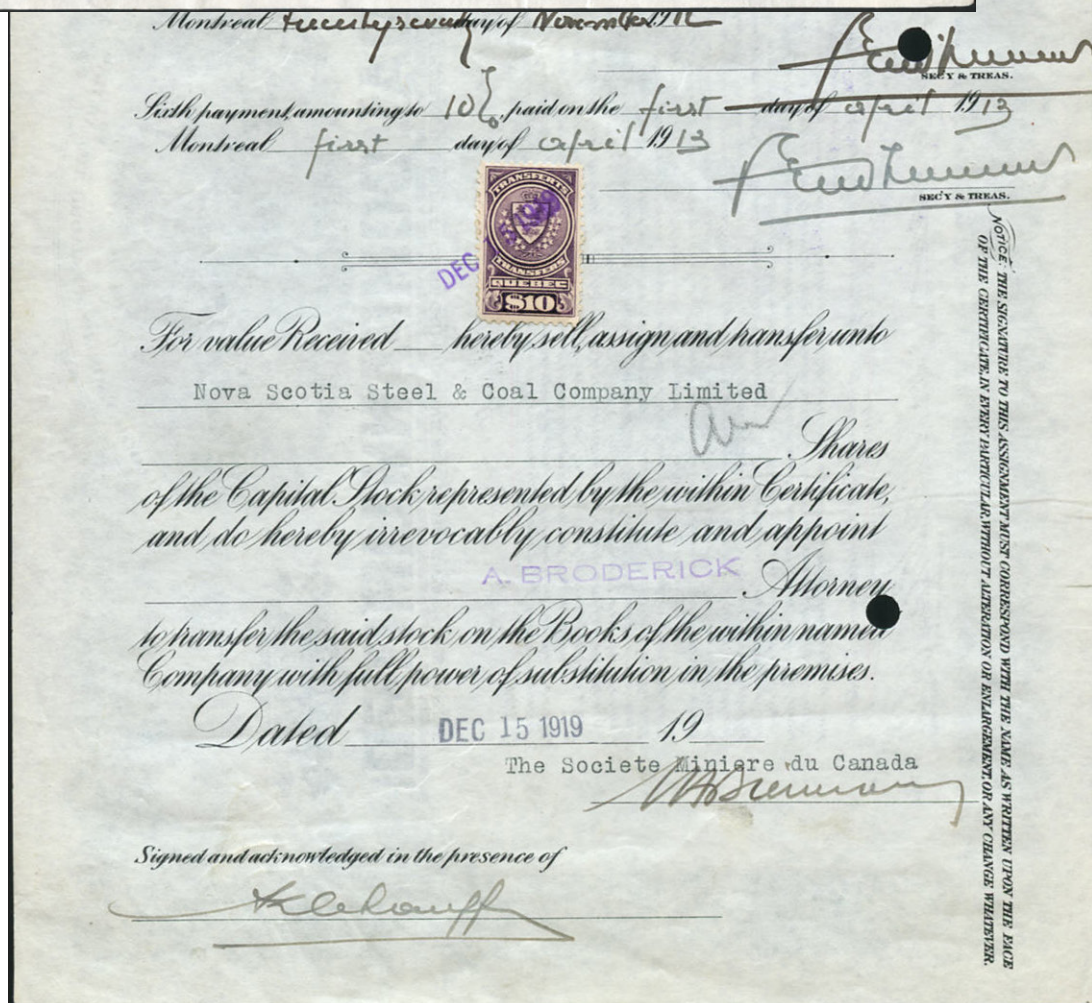 Montreal twenty seventh day of November 1912
SEC'Y & TREAS.
Sixth payment, amounting to 10% paid on the first day of april 1913
Montreal first day of april 1913
SEC'Y & TREAS.
TRANSFERTS
DEC
TRANSFERS
QUEBEC
$10
For value Received hereby sell, assign and transfer unto
Nova Scotia Steel & Coal Company Limited
Shares
of the Capital Stock represented by the within Certificate,
and do hereby irrevocably constitute and appoint
A. BRODERICK Attorney
to transfer the said stock on the Books of the within named
Company with full power of substitution in the premises.
Dated DEC 15 1919 19
The Societe Miniere du Canada
Signed and acknowledged in the presence of
NOTICE: THE SIGNATURE TO THIS ASSIGNMENT MUST CORRESPOND WITH THE NAME AS WRITTEN UPON THE FACE
OF THE CERTIFICATE, IN EVERY PARTICULAR, WITHOUT ALTERATION OR ENLARGEMENT, OR ANY CHANGE WHATEVER.